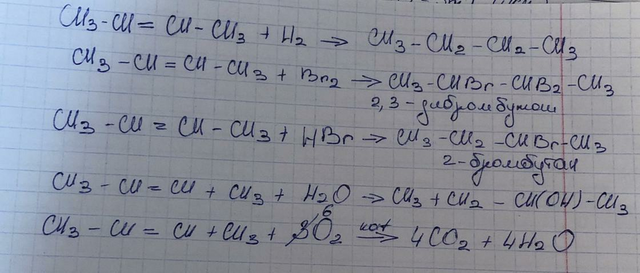 CH3-CH = CH-CH3 + H2 → CH3-CH2-CH2-CH3
CH3-CH = CH-CH3 + Br2 → CH3-CHBr-CHB2-CH3
2,3-дибромбутан
CH3-CH = CH-CH3 + HBr → CH3-CH2-CHBr-CH3
2-бромбутан
CH3-CH = CH + CH3 + H2O → CH3+CH2-CH(OH)-CH3
CH3-CH = CH+CH3 + 6O2 кат→ 4CO2 + 4H2O